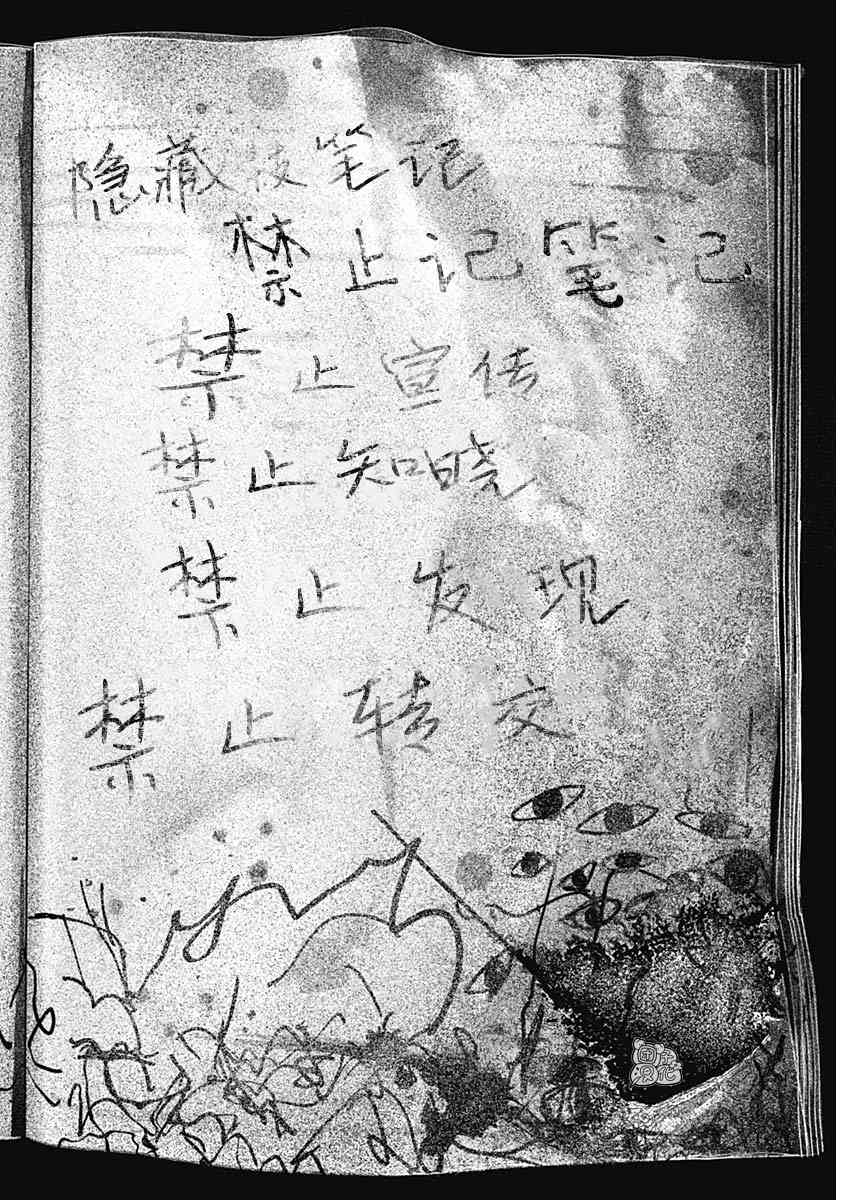 隐藏该笔记
禁止记笔记
禁止宣传
禁止知晓
禁止发现
禁止转交